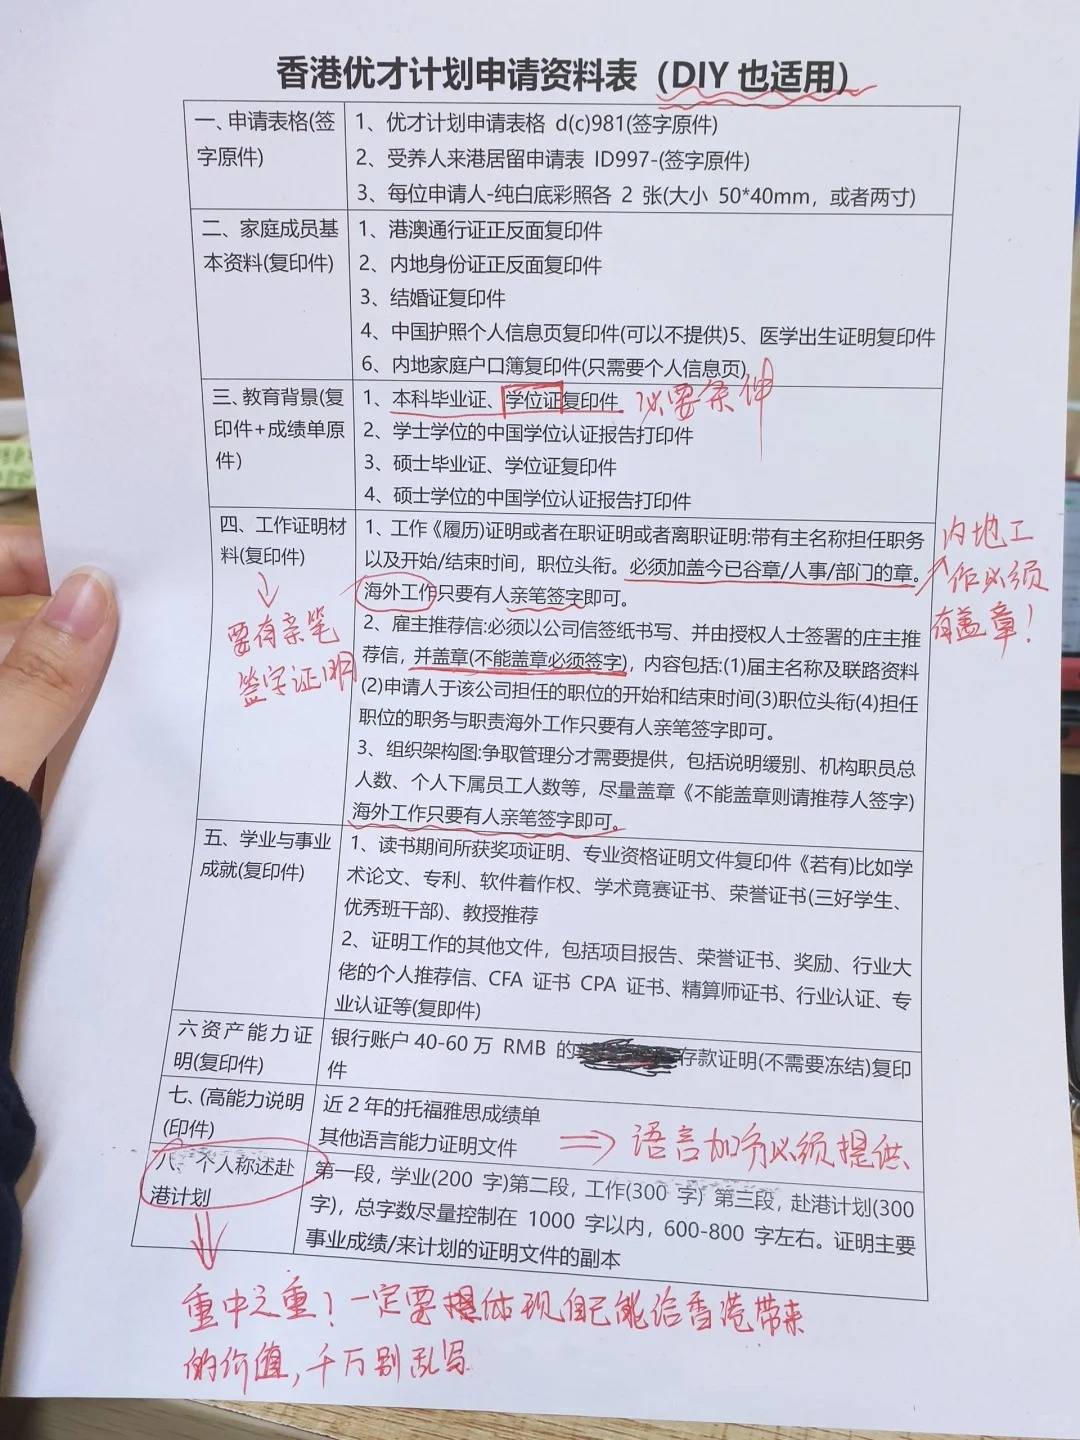 香港优才计划申请资料表（DIY 也适用）
一、申请表格(签
字原件)
1、优才计划申请表格 d(c)981(签字原件)
2、受养人来港居留申请表 ID997-(签字原件)
3、每位申请人-纯白底彩照各 2 张(大小 50*40mm，或者两寸)
二、家庭成员基
本资料(复印件)
1、港澳通行证正反面复印件
2、内地身份证正反面复印件
3、结婚证复印件
4、中国护照个人信息页复印件(可以不提供)5、医学出生证明复印件
6、内地家庭户口簿复印件(只需要个人信息页)
三、教育背景(复
印件+成绩单原
件)
1、本科毕业证、学位证复印件 必要条件
2、学士学位的中国学位认证报告打印件
3、硕士毕业证、学位证复印件
4、硕士学位的中国学位认证报告打印件
四、工作证明材
料(复印件)
要有亲笔
签字证明
1、工作《履历)证明或者在职证明或者离职证明:带有主名称担任职务
以及开始/结束时间，职位头衔。必须加盖今已谷章/人事/部门的章。
海外工作只要有人亲笔签字即可。
内地工
作必须
有盖章！
2、雇主推荐信:必须以公司信签纸书写、并由授权人士签署的庄主推
荐信，并盖章(不能盖章必须签字)，内容包括:(1)届主名称及联路资料
(2)申请人于该公司担任的职位的开始和结束时间(3)职位头衔(4)担任
职位的职务与职责海外工作只要有人亲笔签字即可。
3、组织架构图:争取管理分才需要提供，包括说明缓别、机构职员总
人数、个人下属员工人数等，尽量盖章《不能盖章则请推荐人签字)
海外工作只要有人亲笔签字即可。
五、学业与事业
成就(复印件)
1、读书期间所获奖项证明、专业资格证明文件复印件《若有)比如学
术论文、专利、软件着作权、学术竟赛证书、荣誉证书(三好学生、
优秀班干部)、教授推荐
2、证明工作的其他文件，包括项目报告、荣誉证书、奖励、行业大
佬的个人推荐信、CFA 证书 CPA 证书、精算师证书、行业认证、专
业认证等(复即件)
六资产能力证
明(复印件)
银行账户 40-60 万 RMB 的存款证明(不需要冻结)复印
件
七、(高能力说明
(印件)
近 2 年的托福雅思成绩单
其他语言能力证明文件
语言加分必须提供
八、个人称述赴
港计划
第一段，学业(200 字)第二段，工作(300 字) 第三段，赴港计划(300
字)，总字数尽量控制在 1000 字以内，600-800 字左右。证明主要
事业成绩/来计划的证明文件的副本
重中之重！一定要体现自己能给香港带来
的价值，千万别乱写